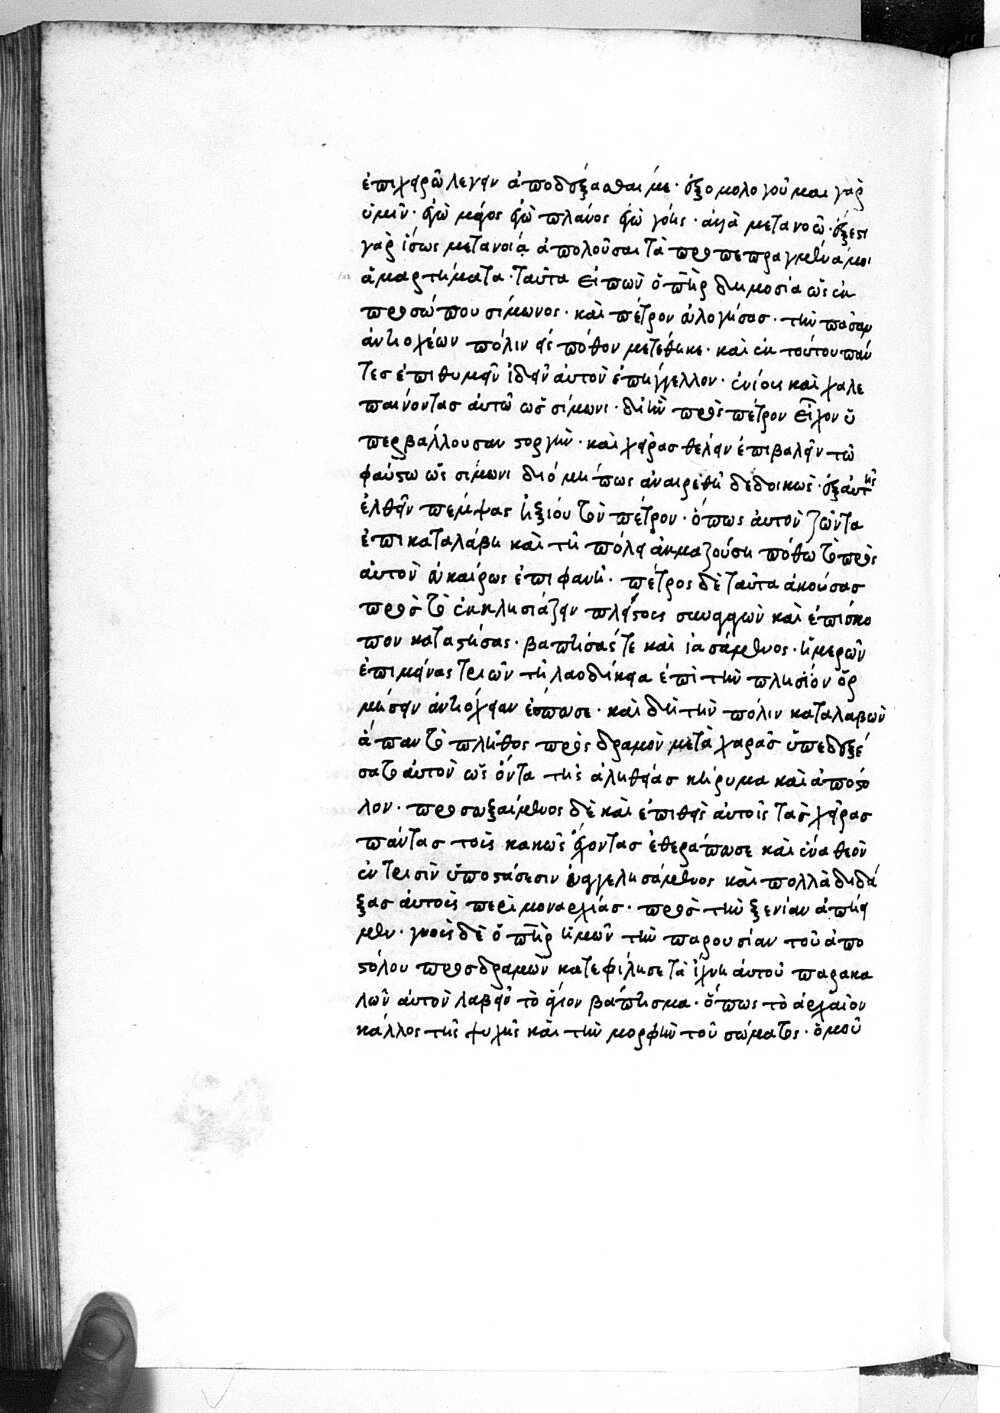 ἐπιχειρῶ λέγειν ἀποδέξασθαί με· ἐξομολογοῦμαι γὰρ
ὑμῖν· ἐγὼ μάγος ἐγὼ πλάνος ἐγὼ γόης· ἀλλὰ μετανοῶ· ἔξεστι
γὰρ ἴσως μετανοία ἀπολοῦσαι τὰ προπεπραγμένα μοι
ἁμαρτήματα· ταῦτα εἰπὼν ὁ π̅η̅ρ̅ δημοσία ὡς ἐκ
προσώπου σίμωνος· καὶ πέτρον εὐλογήσας· τὴν πᾶσαν
ἀντιοχέων πόλιν εἰς πόθον μετέθηκε· καὶ ἐκ τούτου πάν
τες ἐπιθυμεῖν ἰδεῖν αὐτὸν ἐπήγγελλον· ἔνιοι καὶ χαλε
παίνοντας αὐτῶ ὡς σίμωνι· διὰ ἣν πρὸς πέτρον εἶχον ὑ
περβάλλουσαν στοργὴν· καὶ χεῖρας θέλειν ἐπιβαλεῖν τῶ
φαύστω ὡς σίμωνι διὸ μήπως ἀναιρεθῆ δεδοικὼς· ἐξαυτῆς
ἐλθεῖν πέμψας ἠξίου τὸν πέτρον· ὅπως αὐτὸν ζῶντα
ἐπικαταλάβη καὶ τῆ πόλει ἀκμαζούση πόθω τῶ πρὸς
αὐτὸν εὐκαίρως ἐπιφανῆ· πέτρος δὲ ταῦτα ἀκούσας
πρὸς τὸ ἐκκλησιάζειν πλείστοις συναγαγὼν καὶ ἐπίσκο
πον καταστήσας· βαπτίσας τε καὶ ἰασάμενος· ἡμερῶν
ἐπιμείνας τριῶν τῆ λαοδικεία ἐπὶ τὴν πλησίον ὁρ
μήσειν ἀντιόχειαν ἔσπευσε· καὶ δὴ τὴν πόλιν καταλαβὼν
ἅπαν τὸ πλῆθος προσδραμὸν μετὰ χαρᾶς ὑπεδέξα
σατο αὐτὸν ὡς ὄντα τῆς ἀληθείας κήρυμα καὶ ἀπόστο
λον· προσευξάμενος δὲ καὶ ἐπιθεὶς αὐτοῖς τὰς χεῖρας
πάντας τοὺς κακῶς ἔχοντας ἐθεράπευσε καὶ ἕνα θεὸν
ἐν τρισὶν ὑποστάσεσιν εὐαγγελισάμενος καὶ πολλὰ διδά
ξας αὐτοῖς περὶ μοναρχίας· πρὸς τὴν ξενίαν ἀπήει
μεν· γνοὺς δὲ ὁ π̅η̅ρ̅ ἡμῶν τὴν παρουσίαν τοῦ ἀπο
στόλου προσδραμὼν κατεφίλησε τὰ ἴχνη αὐτοῦ παρακα
λῶν αὐτὸν λαβεῖν τὸ ἅγιον βάπτισμα· ὅπως τὸ ἀρχαῖον
κάλλος τῆς ψυχῆς καὶ τὴν μορφὴν τοῦ σώματος· ὁμοῦ